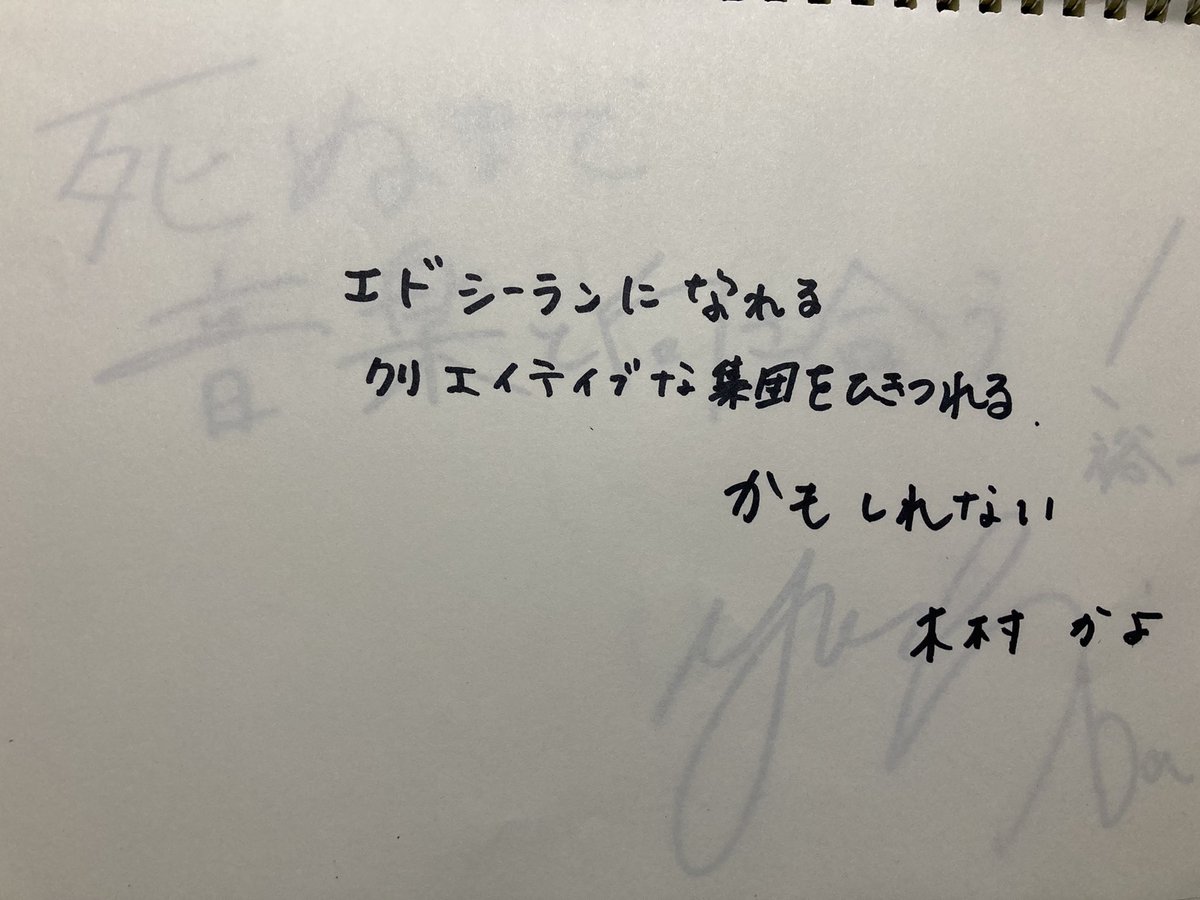 エドシーランになれる
クリエイティブな集団をひきつれる.
かもしれない
木村 かよ
死ぬまで
音楽
！
裕一